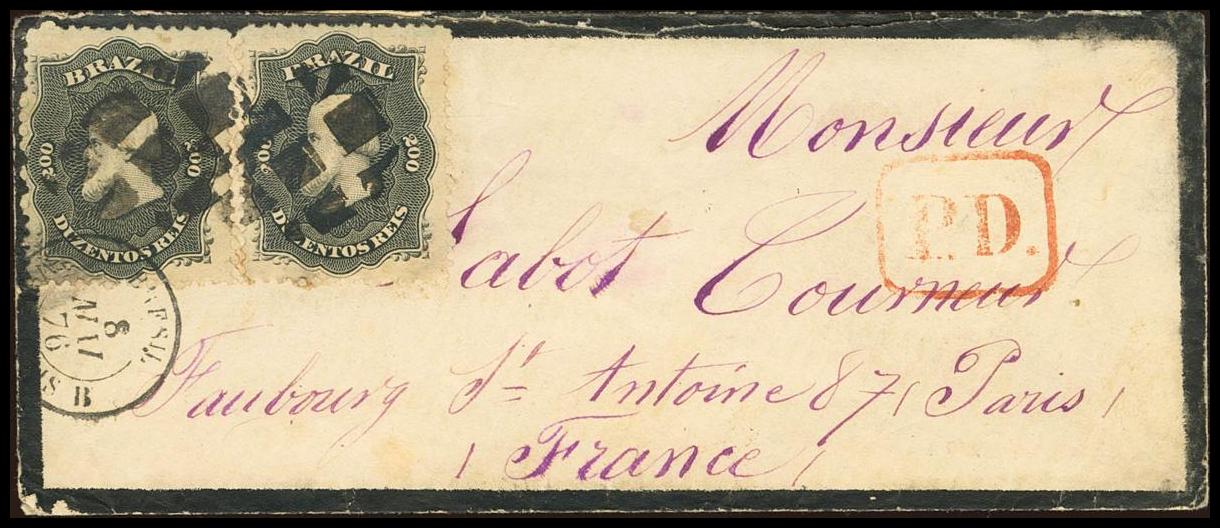 BRAZIL
200 200
DUZENTOS REIS
BRAZIL
200 200
DUZENTOS REIS
Monsieur
P.D.
Cabot Tourneur
Faubourg St Antoine 87 (Paris)
(France)
8
76
B